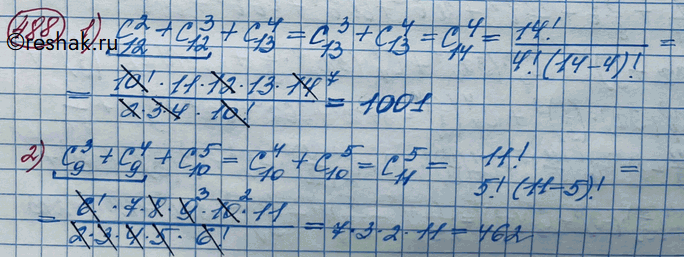 488 1) C₁₂² + C₁₂³ + C₁₃⁴ = C₁₃³ + C₁₃⁴ = C₁₄⁴ = 14! / 4! (14-4)! =
©reshak.ru
= 10! · 11 · 12 · 13 · 14 ⁷ / 2 · 3 · 4 · 10! = 1001
2) C₉³ + C₉⁴ + C₁₀⁵ = C₁₀⁴ + C₁₀⁵ = C₁₁⁵ = 11! / 5! (11-5)! =
= 6! · 7 · 8 · 9³ · 10² · 11 / 2 · 3 · 4 · 5 · 6! = 7 · 3 · 2 · 11 = 462